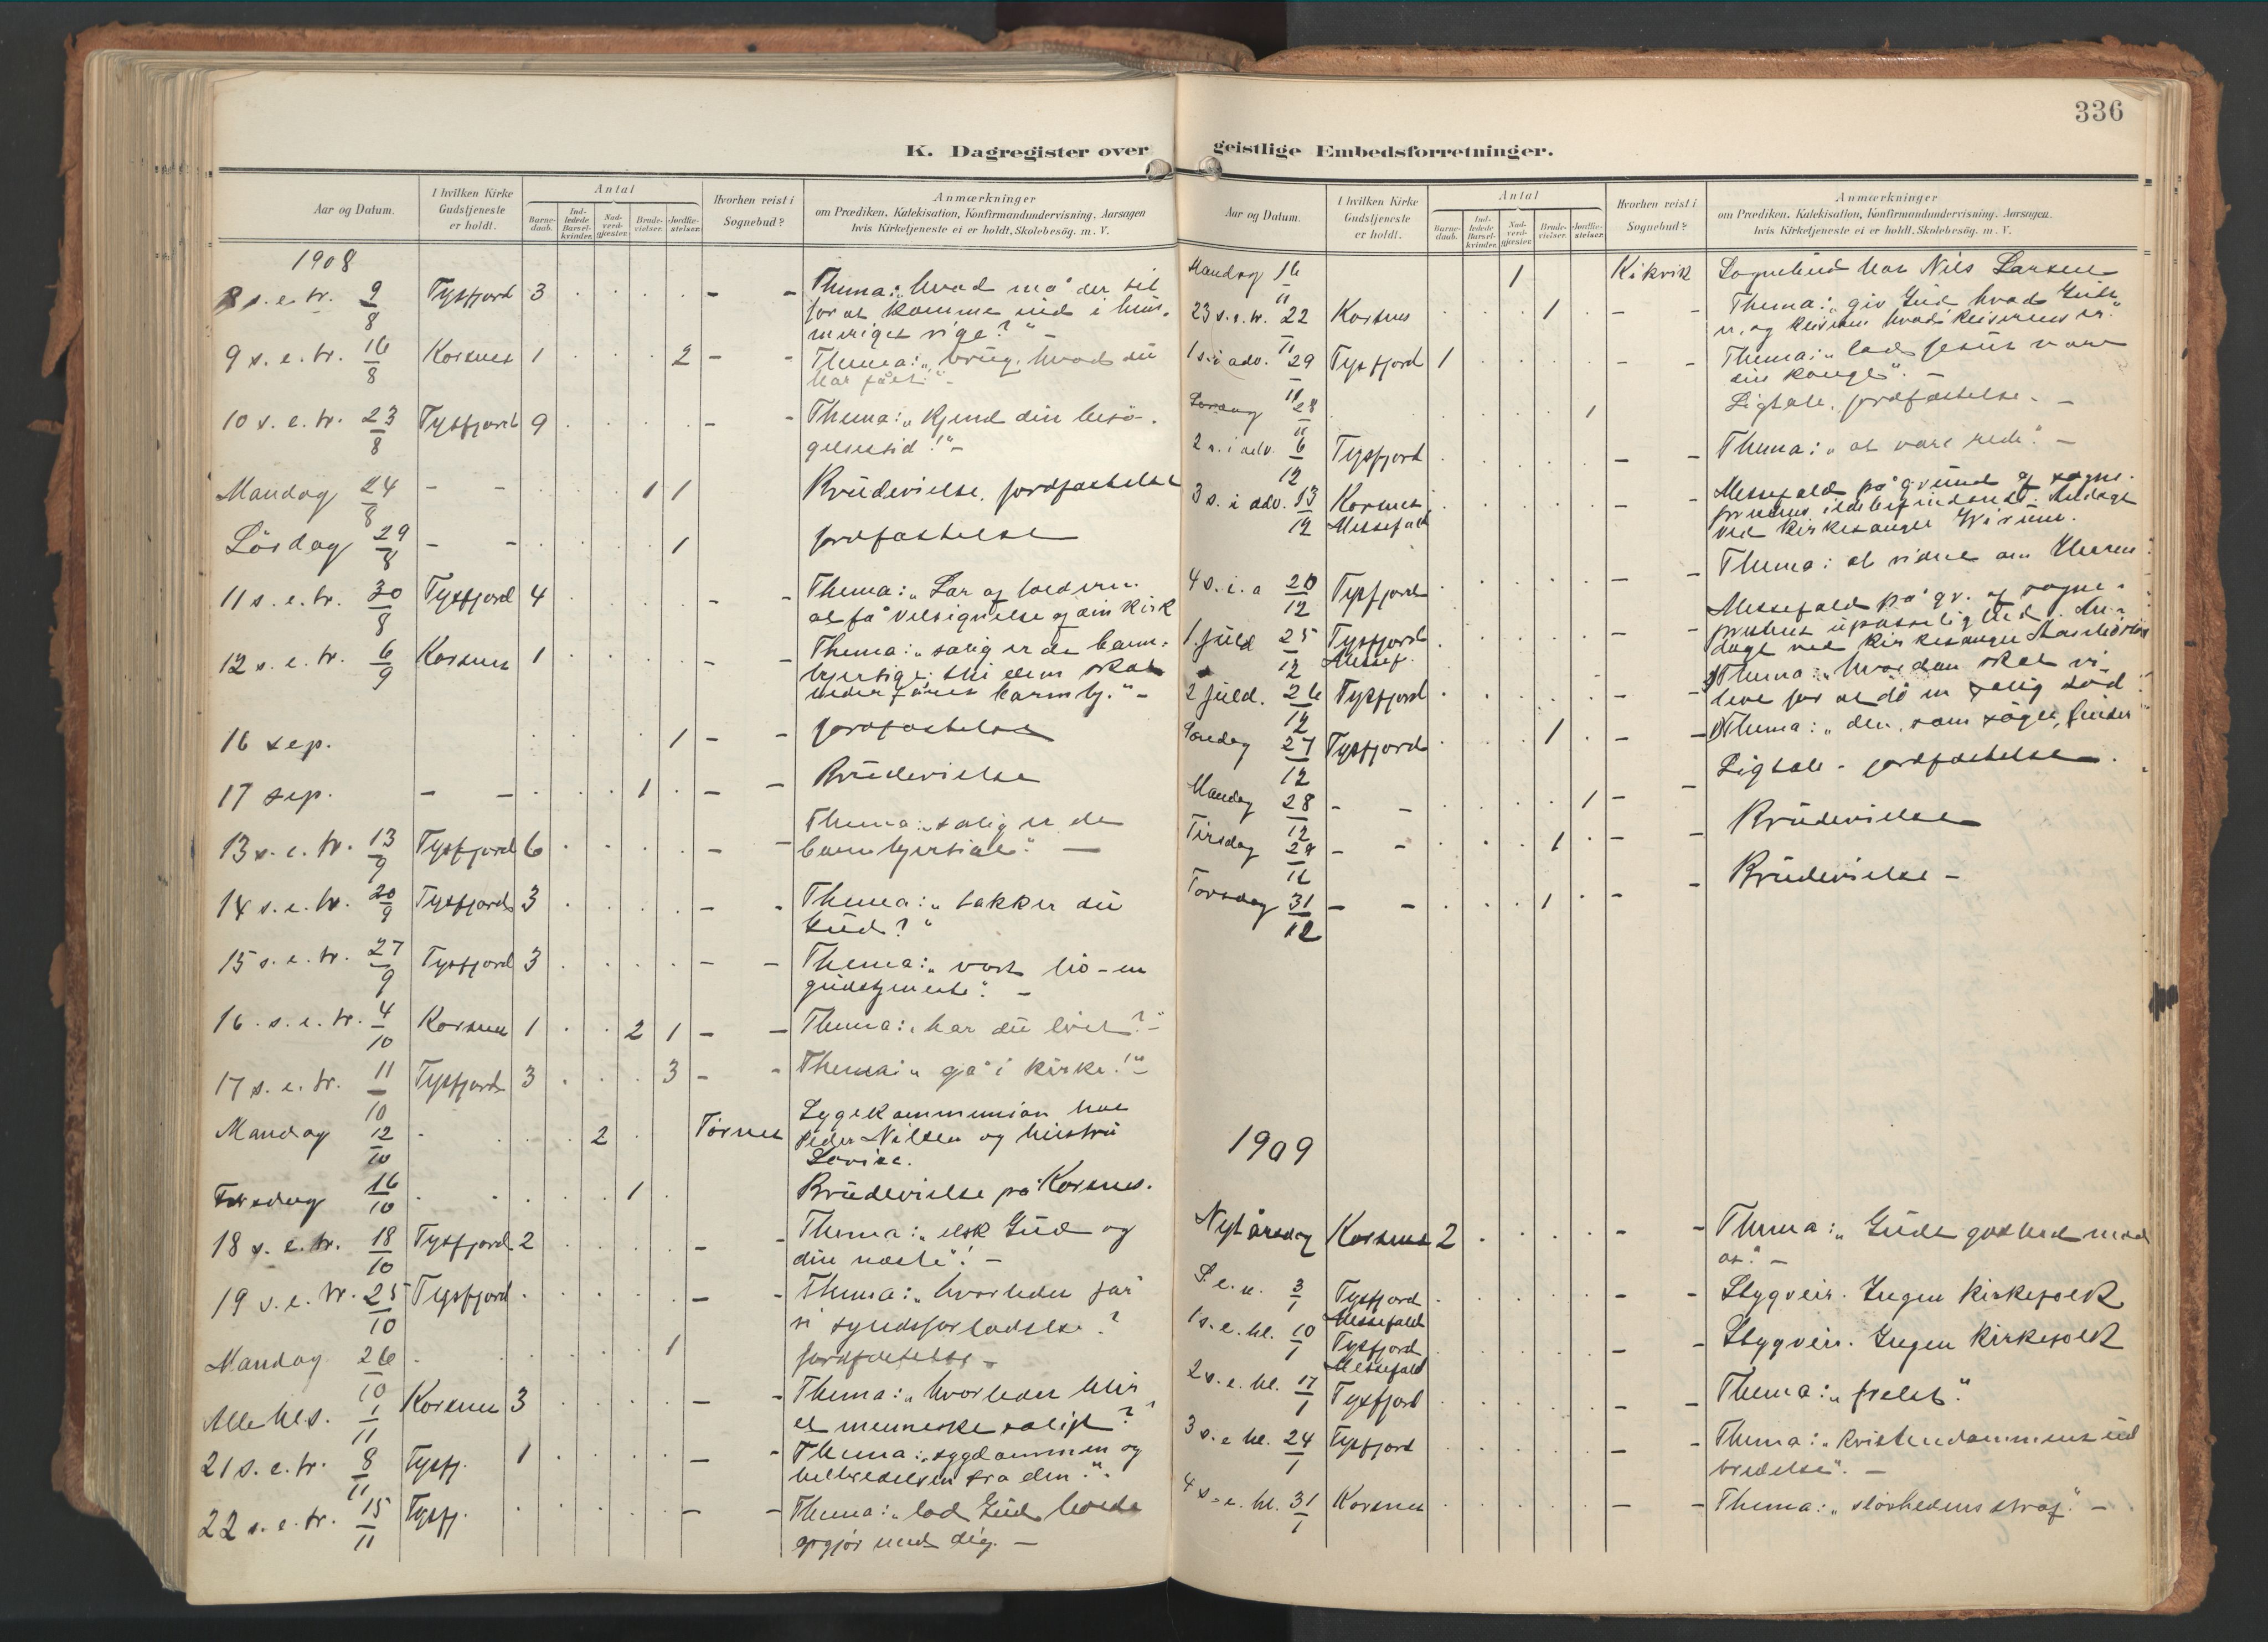 336
K. Dagregister over
Aar og Datum.
I hvilken Kirke
Gudstjeneste
er holdt.
Antal
Barne-
daab.
Ind-
ledede
Barsel-
kvinder.
Nad-
verd-
gjæster.
Brude-
vielser.
Jordfæ-
stelser.
Hvorhen reist i
Sognebud?
Anmærkninger
om Prædiken, Katekisation, Konfirmandundervisning, Aarsagen
hvis Kirketjeneste ei er holdt, Skolebesøg. m. V.
1908
8 s. e. tr. 9/8 Tysfjord 3 - - Thema: „hvad må der til
for at komme ind i him-
meriges rige?" -
9 s. e. tr. 16/8 Korsnes 1 2 - - Thema: „brug, hvad du
har fået." -
10 s. e. tr. 23/8 Tysfjord 9 - - Thema: „Kjend din besø-
gelsestid!" -
Mandag 24/8 - - 1 1 Brudevielse, jordfæstelse
Lørdag 29/8 - - 1 jordfæstelse
11 s. e. tr. 30/8 Tysfjord 4 - - Thema: „Lær af tolderen
at få velsignelse af din kirk
12 s. e. tr. 6/9 Korsnes 1 - - Thema: „salig er de barm-
hjertige; thi dem skal
vederfares barmhj." -
16 sep. 1 - - jordfæstelse
17 sep. - - 1 - - Brudevielse
13 s. e. tr. 13/9 Tysfjord 6 - - Thema: „salig er de
barmhjertige." -
14 s. e. tr. 20/9 Tysfjord 3 - - Thema: „takker du
Gud?"
15 s. e. tr. 27/9 Tysfjord 3 - - Thema: „vort liv - en
gudstjeneste". -
16. s. e. tr. 4/10 Korsnes 1 2 1 - - Thema: „har du livet?" -
17 s. e. tr. 11/10 Tysfjord 3 3 - - Thema: „gå i kirke!" -
Mandag 12/10 2 Tørnes Sygekommunion hos
Peder Nilsen og hustru
Lovise.
Torsdag 16/10 1 Brudevielse på Korsnes.
18 s. e. tr. 18/10 Tysfjord 2 - - Thema: „elsk Gud og
din næste"! -
19 s. e. tr. 25/10 Tysfjord - - Thema: „hvorledes får
vi syndsforladelse?
Mandag 26/10 1 jordfæstelse
Alle hls. 1/11 Korsnes 3 - - Thema: „hvorledes blir
et menneske saligt?"
21 s. e. tr. 8/11 Tysfj. 1 - - Thema: „sygdommen og
helbredelsen fra den." -
22 s. e. tr. 15/11 Tysfj. - - Thema: „lad Gud holde
opgjør med dig. -
geistlige Embedsforretninger.
Aar og Datum.
I hvilken Kirke
Gudstjeneste
er holdt.
Antal
Barne-
daab.
Ind-
ledede
Barsel-
kvinder.
Nad-
verd-
gjæster.
Brude-
vielser.
Jordfæ-
stelser.
Hvorhen reist i
Sognebud?
Anmærkninger
om Prædiken, Katekisation, Konfirmandundervisning, Aarsagen
hvis Kirketjeneste ei er holdt, Skolebesøg. m. V.
Mandag 16/11 1 Kikvik Sognebud hos Nils Larsen
23 s. e. tr. 22/11 Korsnes 1 - - Thema: „giv Gud hvad Guds
er, og keiseren hvad keiserens er."
1 s. i adv. 29/11 Tysfjord 1 - - Thema: „lad Jesus være
din konge". -
28/11 1 Ligtale, jordfæstelse. -
2 s. i adv. 6/12 Tysfjord - - Thema: „at være rede". -
3 s. i adv. 13/12 Korsnes - - Messefald på grund af sogne-
Messefald præstens ildebefindende. Andagt
ved kirkesanger
4 s. i. a 20/12 Tysfjord - - Thema: at vidne om Herren
1. juld 25/12 Tysfjord - - Messefald på gr. af sogne-
Messef. præstens upasselighed. An-
dagt ved kirkesanger
2 juld. 26/12 Tysfjord - Thema: „hvordan skal vi
leve for at dø en salig død
Søndag 27/12 Tysfjord 1 - - Thema: „den, som søger, finder
Mandag 28/12 - - 1 - - Ligtale - jordfæstelse.
Tirsdag 29/12 - - 1 - - Brudevielse
Torsdag 31/12 - - 1 - - Brudevielse -
1909
Nytårsdag Korsnes 2 - - Thema: „Guds godhed mod
os." -
S. e. n. 3/1 Tysfjord - - Stygveir. Ingen kirkefolk
Messefald
1 s. e. hl. 10/1 Tysfjord - - Stygveir. Ingen kirkefolk
Messefald
2 s. e. hl. 17/1 Tysfjord - - Thema: „frelst."
3 s. e hl. 24/1 Tysfjord - - Thema: „Kristendommens ud
bredelse". -
4 s. e. hl. 31/1 Korsnes - - Thema: „sløvhedens straf." -